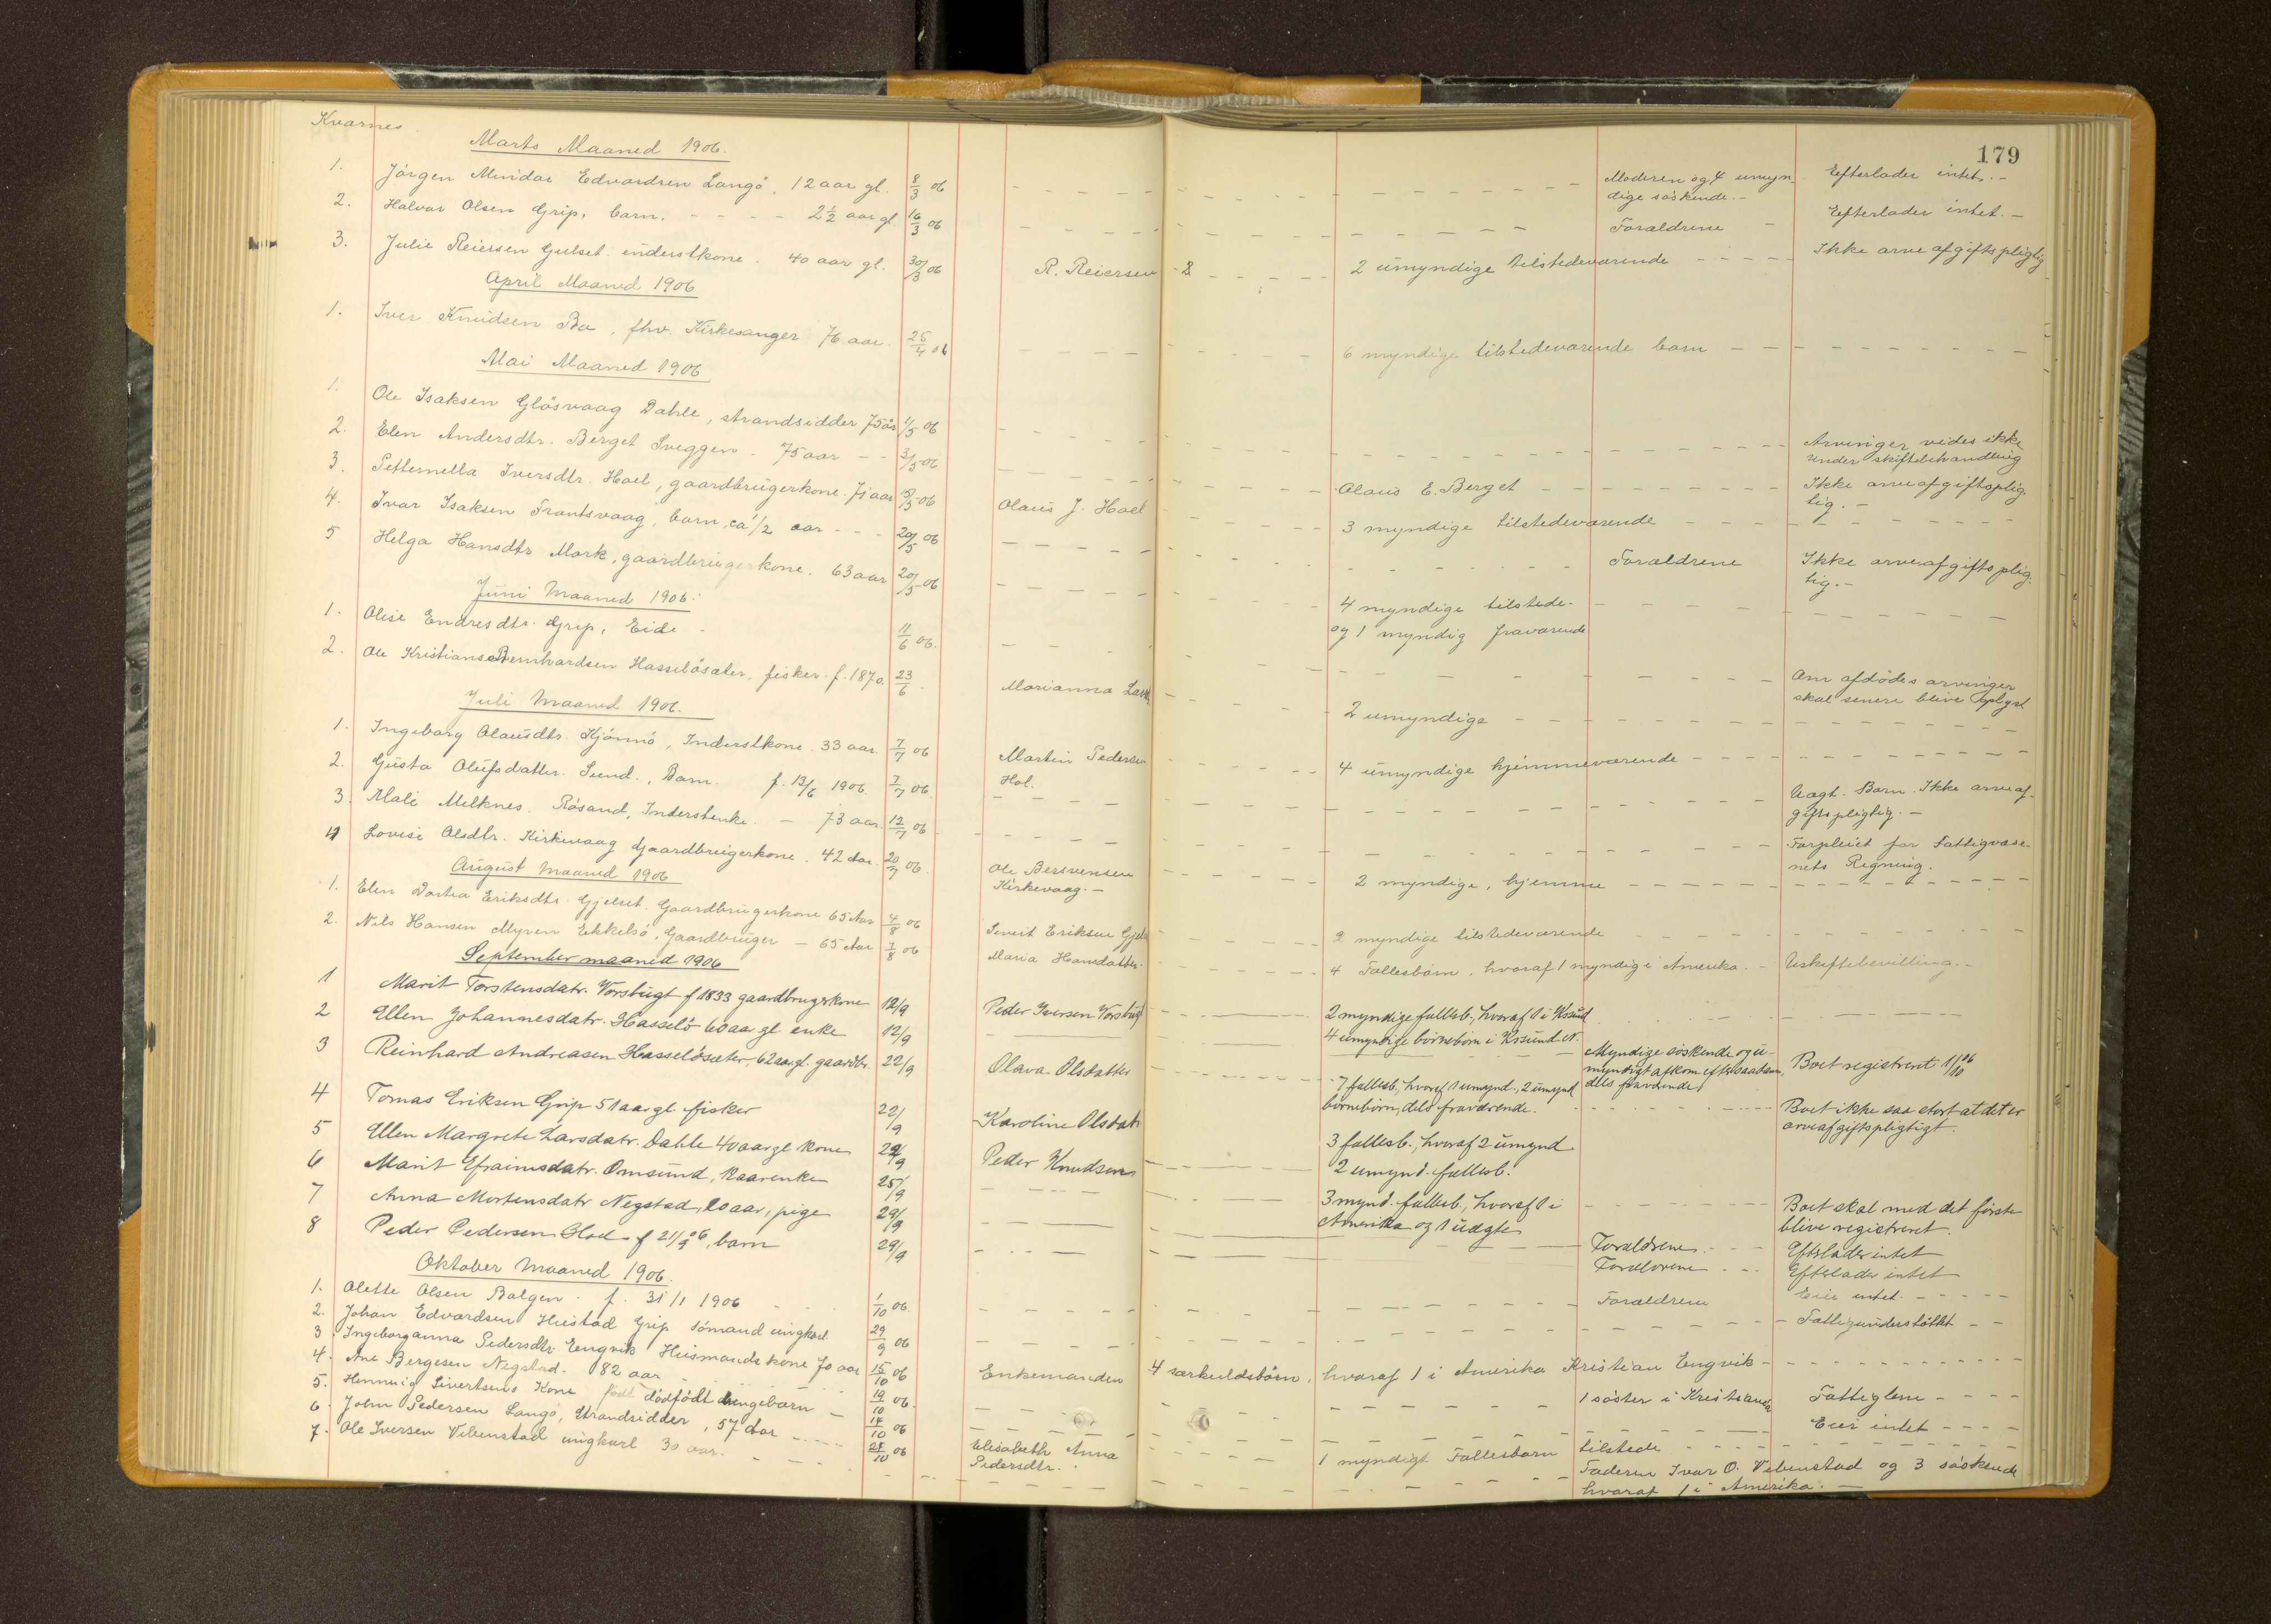 Kvarnes
179
Marts Maaned 1906.
1. Jörgen Mindar Edvardsen Langö, 12 aar gl. 8/3 06 Moderen og 4 umyn- Efterlader intet. -
dige söskende. -
2. Halvar Olsen Grip, barn. - - - - 2 1/2 aar gl. 16/3 06 Foraldrene - Efterlader intet. -
3. Julie Reiersen Gulset inderstkone. 40 aar gl. 30/3 06 R. Reiersen - 2 umyndige tilstedevarende - - - - - Ikke arveafgiftspligtig
April Maaned 1906
1. Iver Knudsen Bo, fhv. Kirkesanger 76 aar. 25/4 06 6 myndige tilstedevarende barn
Mai Maaned 1906
1. Ole Isaksen Glösvaag Dahle, strandsidder 75 år 1/5 06 Arvinger vides ikke
under skiftebehandling
2. Elen Andersdtr. Berget Sveggen. 75 aar - - 3/5 06 Olaus E. Berget Ikke arveafgiftsplig-
tig. -
3. Petternella Iversdtr. Hoel, gaardbrugerkone. 71 aar 15/5 06 Olaus J. Hoel 3 myndige tilstedevarende
4. Ivar Isaksen Trantsvaag, barn, ca 1/2 aar - - 20/5 06 Foraldrene Ikke arveafgiftsplig-
tig. -
5 Helga Hansdtr Mork, gaardbrugerkone. 63 aar 20/5 06 4 myndige tilstede-
og 1 myndig fravarende
Juni Maaned 1906.
1. Olise Endresdtr. Grip, Eide. 11/6 06. Om afdödes arvinger
skal senere blive oplyst
2. Ole Kristian Bernhardsen Hasselösater, fisker. f. 1870. 23/6. Marianna 2 umyndige
Juli Maaned 1906.
1. Ingeborg Olausdtr. Kjönnö, Inderstkone. 33 aar. 7/7 06 Martin Pedersen 4 umyndige hjemmevarende
Hol.
2. Gusta Olufsdatter. Sund., Barn. f. 13/6 1906. 7/7 06. Uagt. Barn. Ikke arveaf-
giftspligtig. -
3. Mali Melknes. Rösand, Inderstenke. - 73 aar 12/7 06 Forpleiet for Fattigvase-
nets Regning.
4 Lovise Olsdtr. Kirkevaag Gaardbrugerkone. 42 Aar. 20/7 06. Ole Bersvensen 2 myndige, hjemme
Kirkevaag. -
August Maaned 1906
1. Elen Dortea Eriksdtr. Gjelset. Gaardbrugerkone 65 Aar 4/8 06 Sivert Eriksen 2 myndige tilstedevarende
2. Nils Hansen Myren Ekkelsö, Gaardbruger - 65 Aar 7/8 06 Maria Hansdatter. 4 Fallesbörn, hvoraf 1 myndig i Amerika. - Uskiftebevilling. -
September maaned 1906
1 Marit Torstensdatr. Vorsbugt f 1833 gaardbrugerkone 12/9 Peder Iversen Vorsbugt 2 myndige fallesb., hvoraf 1 i Kssund
2 Ellen Johannesdatr. Hasselö 60 aar gl. enke 12/9 4 umyndige börnebörn i Kssund N.
3 Reinhard Andreasen Hasselösæter, 62 aar gl. gaardbr. 22/9 Olava Olsdatter Myndige söskende og u-
myndigt afkom efter saadan, Boet registreret 1/10 06
dels fravarende
4 Tomas Eriksen Grip 51 aar gl. fisker 22/9 Karoline Olsdatr 7 fallesb., hvoraf 1 umynd., 2 umynd
börnebörn, dels fraværende. Boet ikke saa stort at det er
arveafgiftspligtigt.
5 Ellen Margrete Larsdatr. Dahle 40 aar gl kone 22/9 Peder Knudsen 3 fallesb., hvoraf 2 umynd
2 umynd. fallesb.
6 Marit Efraimsdatr. Omsund, kaarenke 25/9 3 mynd. fallesb., hvoraf 1 i Boet skal med det förste
Amerika og 1 uægte blive registreret.
7 Anna Mortensdatr Negstad, 20 aar, pige 29/9 Foraldrene. - Efterlader intet
8 Peder Pedersen Hoel f 21/9 06, barn 29/9 Foraldrene - Efterlader intet
Oktober Maaned 1906.
1. Olette Olsen Bolgen. f. 31/1 1906 1/10 06 Foraldrene Eier intet. - -
2. Johan Edvardsen Hustad Grip Sömand ungkarl 29/9 06 Fattigunderstöttet - -
3. Ingeborganna Pedersdtr Engvik Husmandskone 70 aar 15/10 06 Enkemanden 4 sarkuldsbörn, hvoraf 1 i Amerika Kristian Engvik -
4. Ane Bergesen Negstad. 82 aar 19/10 06. 1 söster i Kristiansd Fattiglem - -
5. Henning Sivertsens Kone födt dödfödt drengebarn - 14/10 06 Eier intet - - -
6. John Pedersen Langö, Strandsidder, 57 Aar 28/10 06 Elisabeth Anna 1 myndigt Fallesbarn tilstede
Pedersdtr.
7. Ole Iversen Vebenstad ungkarl 30 aar. Faderen Ivar O. Vebenstad og 3 söskende
hvoraf 1 i Amerika. -